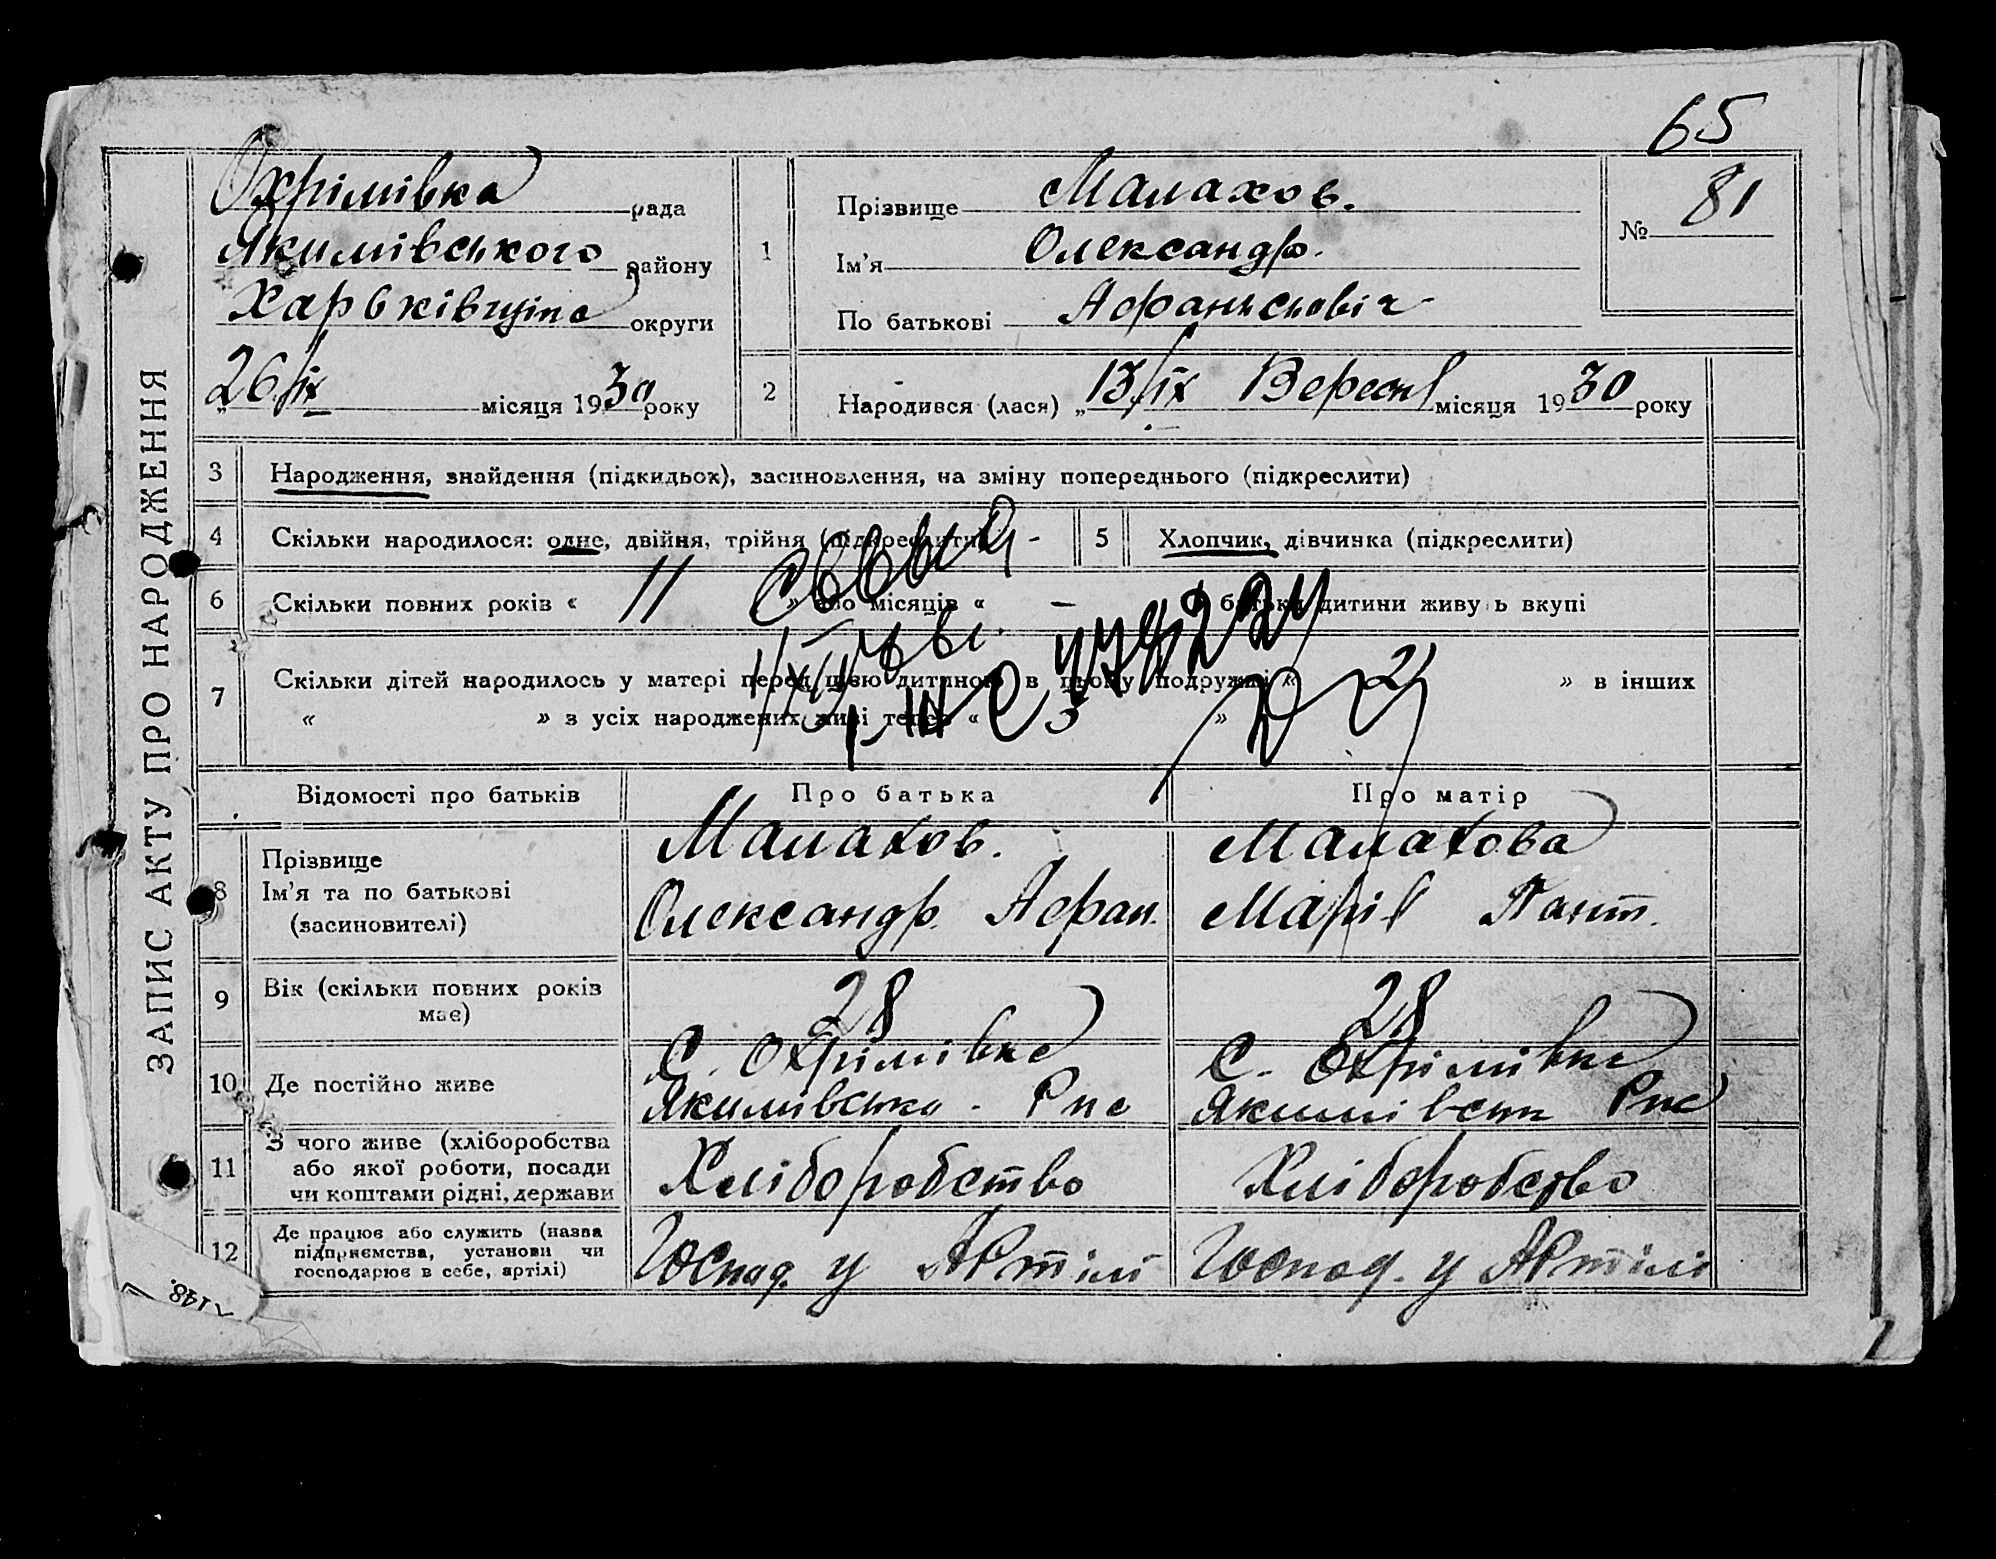 65
ЗАПИС АКТУ ПРО НАРОДЖЕННЯ
Охрімівка рада
Якимівського району
округи
26/ix місяця 1930 року
1
Прізвище Малахов.
Ім'я Олександр.
По батькові
№ 81
2
Народився (лася) „13/ix Вересн місяця 1930 року
3 Народження, знайдення (підкидьох), засиновлення, на зміну попереднього (підкреслити)
4 Скільки народилося: одне, двійня, трійня (підкреслити) -
5 Хлопчик, дівчинка (підкреслити)
6 Скільки повних років « 11 » або місяців « — » батьки дитини живуть вкупі
7 Скільки дітей народилось у матері перед цією дитиною в цьому подружжі « » в інших
« » з усіх народжених живі тепер « »
Відомості про батьків
Про батька
Про матір
8 Прізвище
Ім'я та по батькові
(засиновителі)
Малахов.
Олександр. Афан.
Малахова
Марія Пант.
9 Вік (скільки повних років має)
28
28
10 Де постійно живе
С. Охрімівка
С. Охрімівка
11 З чого живе (хліборобства
або якої роботи, посади
чи коштами рідні, держави
Хліборобство
Хліборобство
12 Де працює або служить (назва
підприємства, установи чи
господарює в себе, артілі)
Господ. у Артілі
Господ. у Артілі
148.